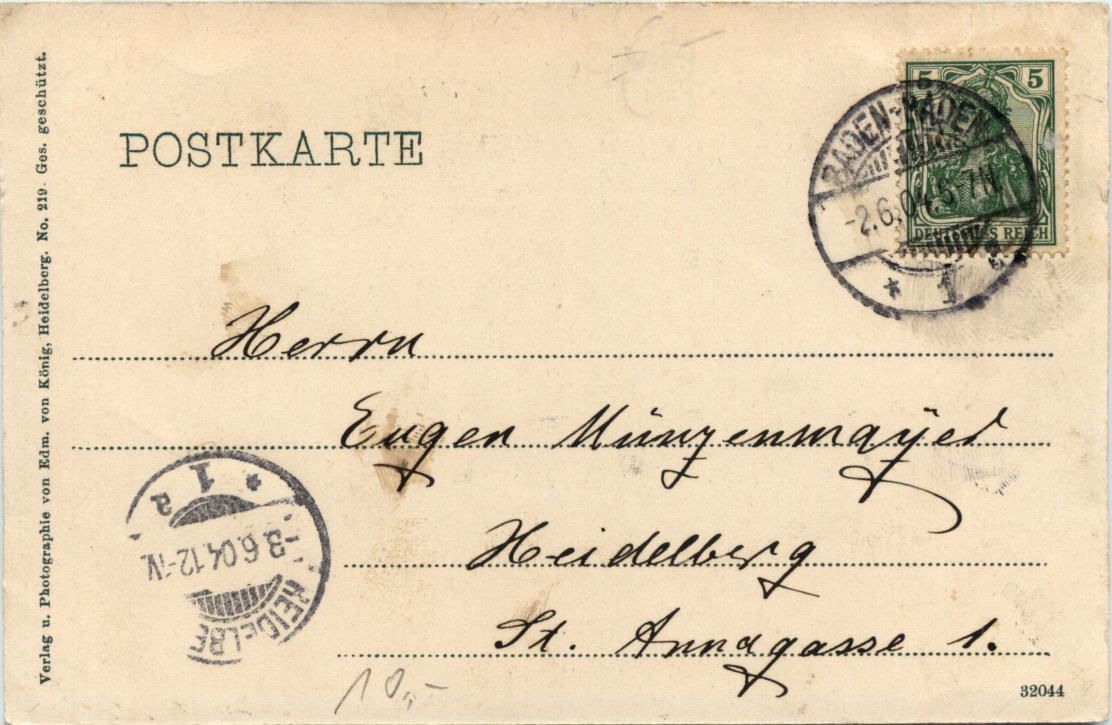 Verlag u. Photographie von Edm. von König, Heidelberg. No. 219. Ges. geschützt.
POSTKARTE
5 5
DEUTSCHES REICH
BADEN-BADEN
-2.6.04.5-7N.
* 1 a
Herrn
Eugen Münzenmayer
Heidelberg
St. Annagasse 1.
* 1 a
-3.6.04.12-1V.
HEIDELBE
10,-
32044